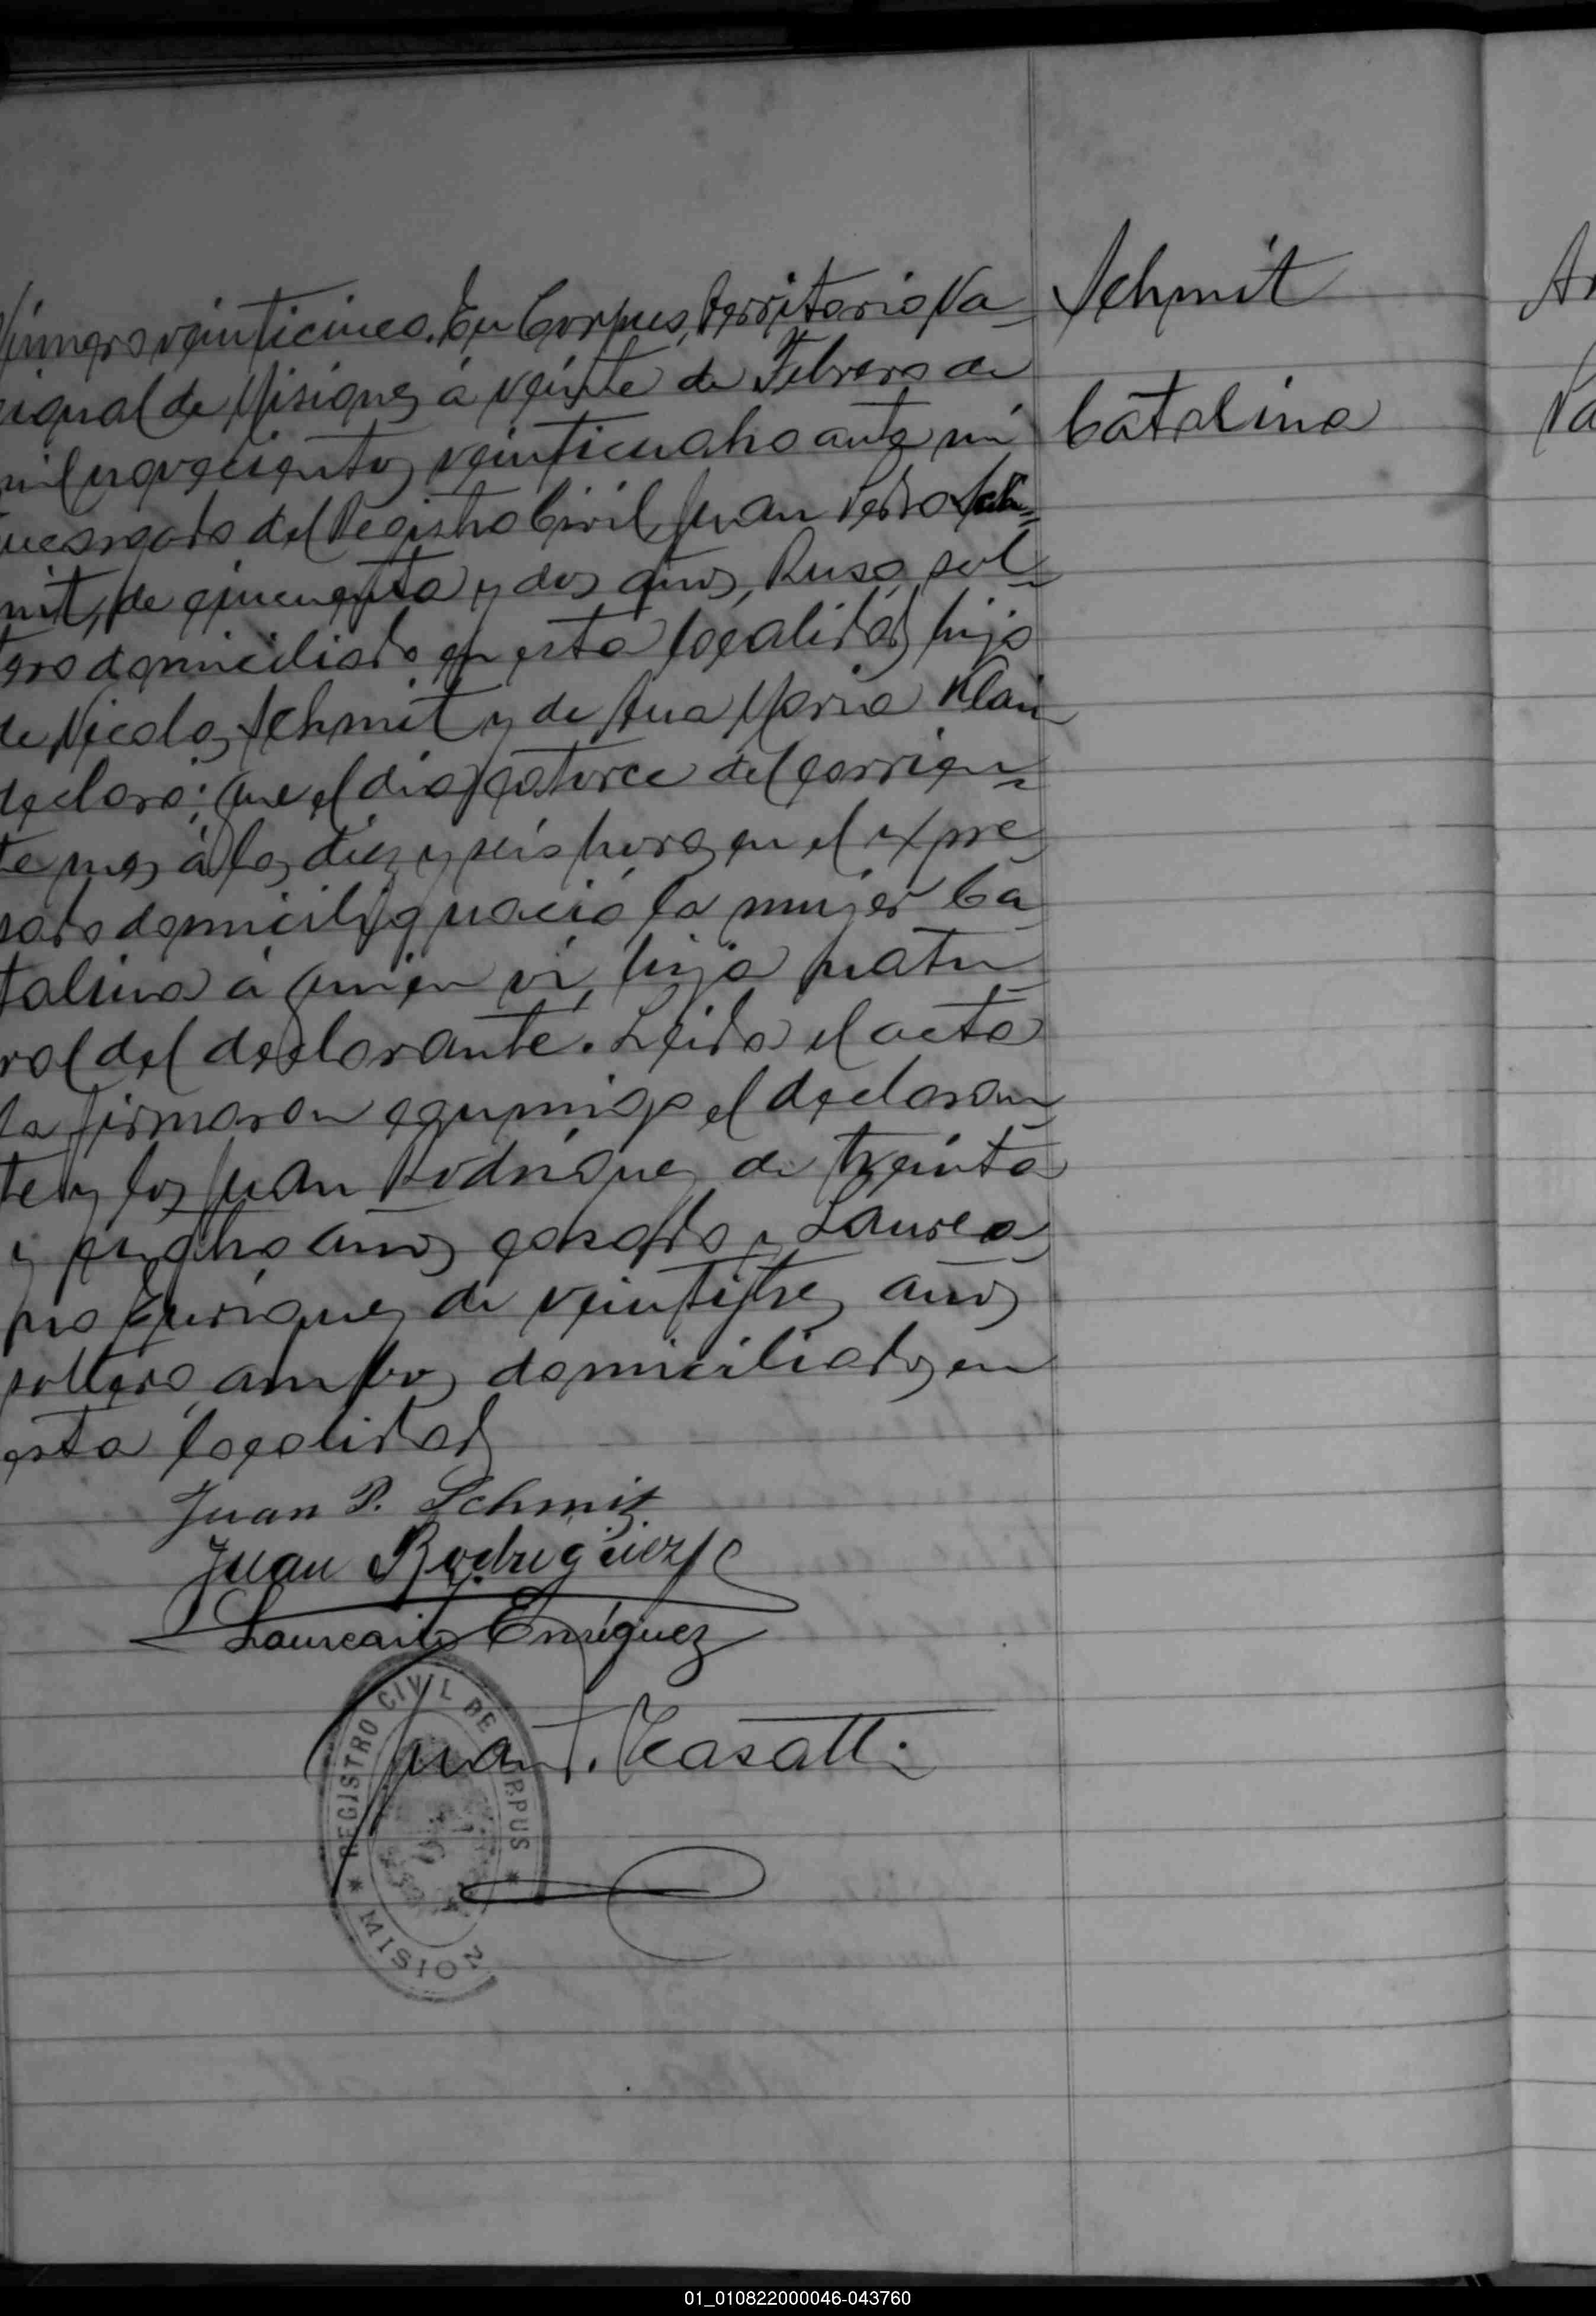 Número veinticinco. En Corpus, Territorio Na=
cional de Misiones á veinte de Febrero de
mil novecientos veinticuatro ante mi
encargado del Registro Civil, Juan Pedro Sch=
mit, de cincuenta y dos años, Ruso, sol=
tero domiciliado en esta localidad, hijo
de Nicolas Schmit y de Ana Maria Klain
declaró: Que el dia catorce del corrien=
te mes á las diez y seis horas en el expre
sado domicilio nació la mujer Ca
talina á quien vi, hija natu
ral del declarante. Leida el acta
la firmaron conmigo el declaran
te y los Juan Rodrigues de treinta
y cuatro años casado y Laurea
no Enriques de veintitres años
soltero ambos domiciliados en
esta localidad
Juan P. Schmit
Juan Rodriguez
Laureano Enriguez
Juan T. Casatti
Schmit
Catalina
REGISTRO CIVIL DE CORPUS
* MISIO
Ar